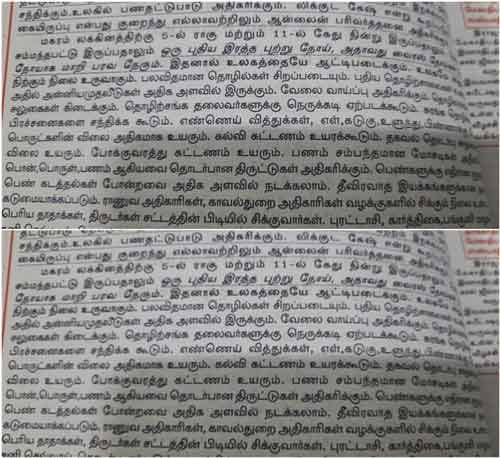 சந்திக்கும். உலகில் பணதட்டுப்பாடு அதிகரிக்கும். லிக்குட் கேஷ்
கையிருப்பு என்பது குறைந்து எல்லாவற்றிலும் ஆன்லைன் பரிவர்த்தனை
மகரம் லக்கினத்திற்கு 5-ல் ராகு மற்றும் 11-ல் கேது நின்று
சம்மந்தபட்டு இருப்பதாலும் ஒரு புதிய இரத்த புற்று நோய், அதாவது வைரஸ்
நோயாக மாறி பரவ நேரும். இதனால் உலகத்தையே ஆட்டிபடைக்கும்.
திற்கும் நிலை உருவாகும். பலவிதமான தொழில்கள் சிறப்படையும். புதிய
அதில் அன்னியமுதலீடுகள் அதிக அளவில் இருக்கும். வேலை வாய்ப்பு அதிகரிக்கும்
சலுகைகள் கிடைக்கும். தொழிற்சங்க தலைவர்களுக்கு நெருக்கடி ஏற்படக்கூடும்.
பிரச்சனைகளை சந்திக்க கூடும். எண்ணெய் வித்துக்கள், எள்,கடுகு,உளுந்து
பொருட்களின் விலை அதிகமாக உயரும். கல்வி கட்டணம் உயரக்கூடும். தகவல்
விலை உயரும். போக்குவரத்து கட்டணம் உயரும். பணம் சம்பந்தமான மோசடிகள்
பொன்,பொருள்,பணம் ஆகியவை தொடர்பான திருட்டுகள் அதிகரிக்கும். பெண்களுக்கு
பெண் கடத்தல்கள் போன்றவை அதிக அளவில் நடக்கலாம். தீவிரவாத இயக்கங்களுக்கான
கடுமையாக்கப்படும். ராணுவ அதிகாரிகள், காவல்துறை அதிகாரிகள் வழக்குகளில் சிக்கும் நிலை
பெரிய தாதாக்கள், திருடர்கள் சட்டத்தின் பிடியில் சிக்குவார்கள். புரட்டாசி, கார்த்திகை,பங்குனி
சந்திக்கும். உலகில் பணதட்டுப்பாடு அதிகரிக்கும். லிக்குட் கேஷ்
கையிருப்பு என்பது குறைந்து எல்லாவற்றிலும் ஆன்லைன் பரிவர்த்தனை
மகரம் லக்கினத்திற்கு 5-ல் ராகு மற்றும் 11-ல் கேது நின்று
சம்மந்தபட்டு இருப்பதாலும் ஒரு புதிய இரத்த புற்று நோய், அதாவது வைரஸ்
நோயாக மாறி பரவ நேரும். இதனால் உலகத்தையே ஆட்டிபடைக்கும்.
திற்கும் நிலை உருவாகும். பலவிதமான தொழில்கள் சிறப்படையும். புதிய
அதில் அன்னியமுதலீடுகள் அதிக அளவில் இருக்கும். வேலை வாய்ப்பு அதிகரிக்கும்
சலுகைகள் கிடைக்கும். தொழிற்சங்க தலைவர்களுக்கு நெருக்கடி ஏற்படக்கூடும்.
பிரச்சனைகளை சந்திக்க கூடும். எண்ணெய் வித்துக்கள், எள்,கடுகு,உளுந்து
பொருட்களின் விலை அதிகமாக உயரும். கல்வி கட்டணம் உயரக்கூடும். தகவல்
விலை உயரும். போக்குவரத்து கட்டணம் உயரும். பணம் சம்பந்தமான மோசடிகள்
பொன்,பொருள்,பணம் ஆகியவை தொடர்பான திருட்டுகள் அதிகரிக்கும். பெண்களுக்கு
பெண் கடத்தல்கள் போன்றவை அதிக அளவில் நடக்கலாம். தீவிரவாத இயக்கங்களுக்கான
கடுமையாக்கப்படும். ராணுவ அதிகாரிகள், காவல்துறை அதிகாரிகள் வழக்குகளில் சிக்கும் நிலை
பெரிய தாதாக்கள், திருடர்கள் சட்டத்தின் பிடியில் சிக்குவார்கள். புரட்டாசி, கார்த்திகை,பங்குனி